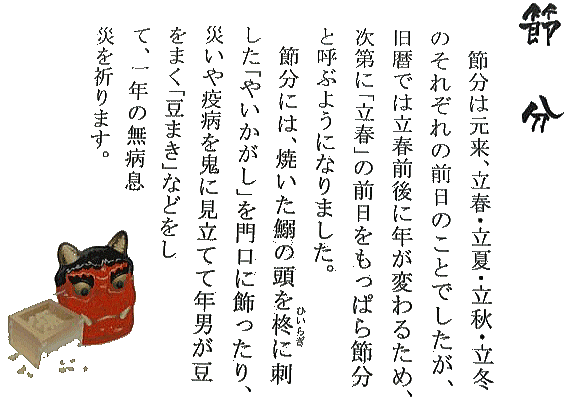 節分
節分は元来、立春・立夏・立秋・立冬
のそれぞれの前日のことでしたが、
旧暦では立春前後に年が変わるため、
次第に「立春」の前日をもっぱら節分
と呼ぶようになりました。
節分には、焼いた鰯の頭を柊に刺
ひいらぎ
した「やいかがし」を門口に飾ったり、
災いや疫病を鬼に見立てて年男が豆
をまく「豆まき」などをし
て、一年の無病息
災を祈ります。